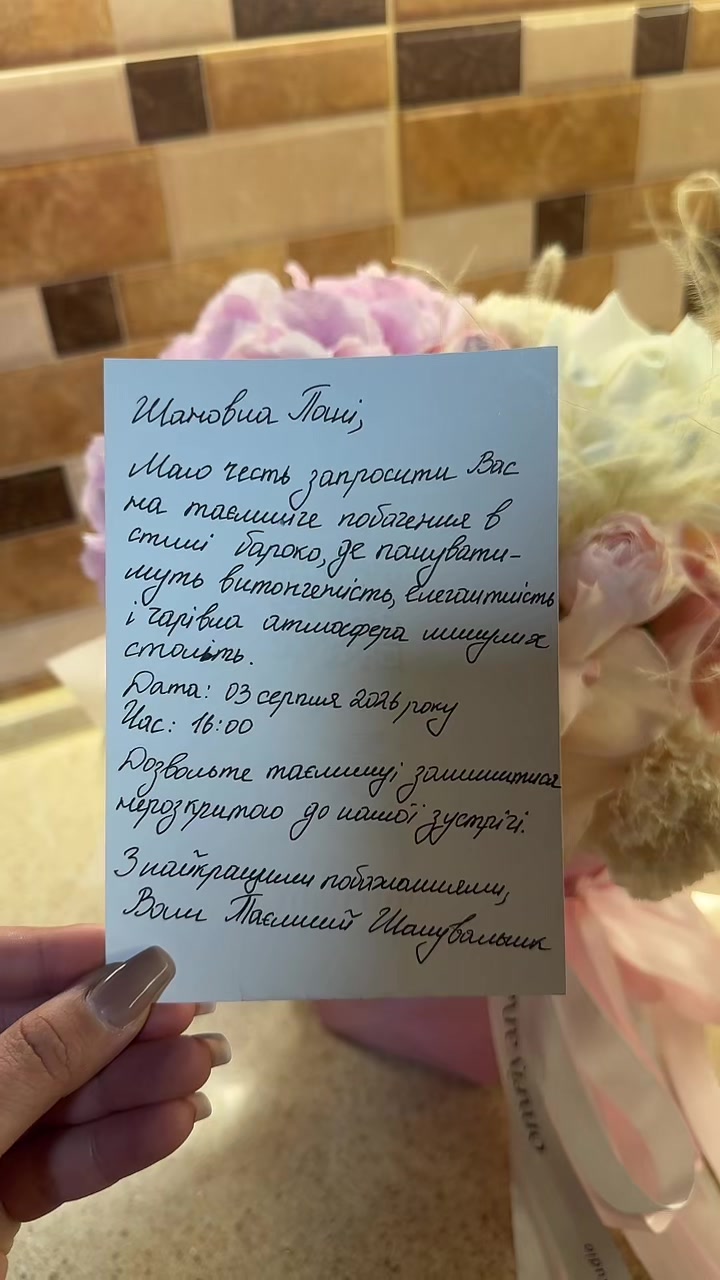 Шановна Пані,
Маю честь запросити Вас
на таємниче побачення в
стилі бароко, де пануватиʼ
муть витонченість, елегантність
і чарівна атмосфера минулих
століть.
Дата: 03 серпня 2026 року
Час: 16:00
Дозвольте таємниці залишитися
нерозкритою до нашої зустрічі.
З найкращими побажаннями,
Ваш Таємний Шанувальник